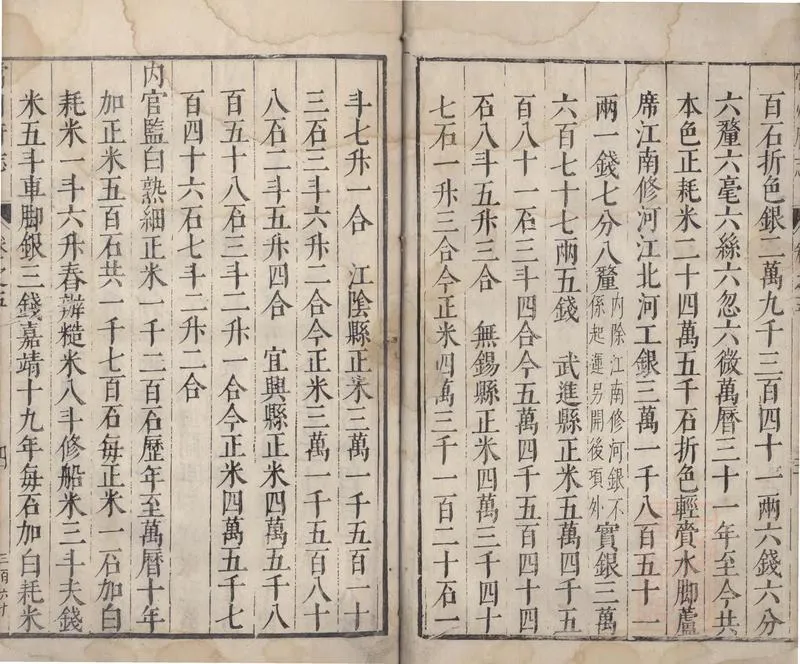 百石折色銀二萬九千三百四十一兩六錢六分
六釐六毫六絲六忽六微萬曆三十一年至今共
本色正耗米二十四萬五千石折色輕賫水脚蘆
席江南修河江北河工銀三萬一千八百五十一
兩一錢七分八釐內除江南修河銀不係起運另開後項外實銀三萬
六百七十七兩五錢　武進縣正米五萬四千五
百八十一石三斗四合今五萬四千五百四十四
石八斗五升三合　無錫縣正米四萬三千四十
七石一升三合今正米四萬三千一百二十石一
斗七升一合　江陰縣正米三萬一千五百一十
三石三斗六升二合今正米三萬一千五百八十
八石二斗五升四合　宜興縣正米四萬五千八
百五十八石三斗二升一合今正米四萬五千七
百四十六石七斗二升二合
內官監白熟細正米一千二百石歷年至萬曆十年
加正米五百石共一千七百石每正米一石加白
耗米一斗六升舂辦糙米八斗修船米三斗夫錢
米五斗車脚銀三錢嘉靖十九年每石加白耗米
卷之五